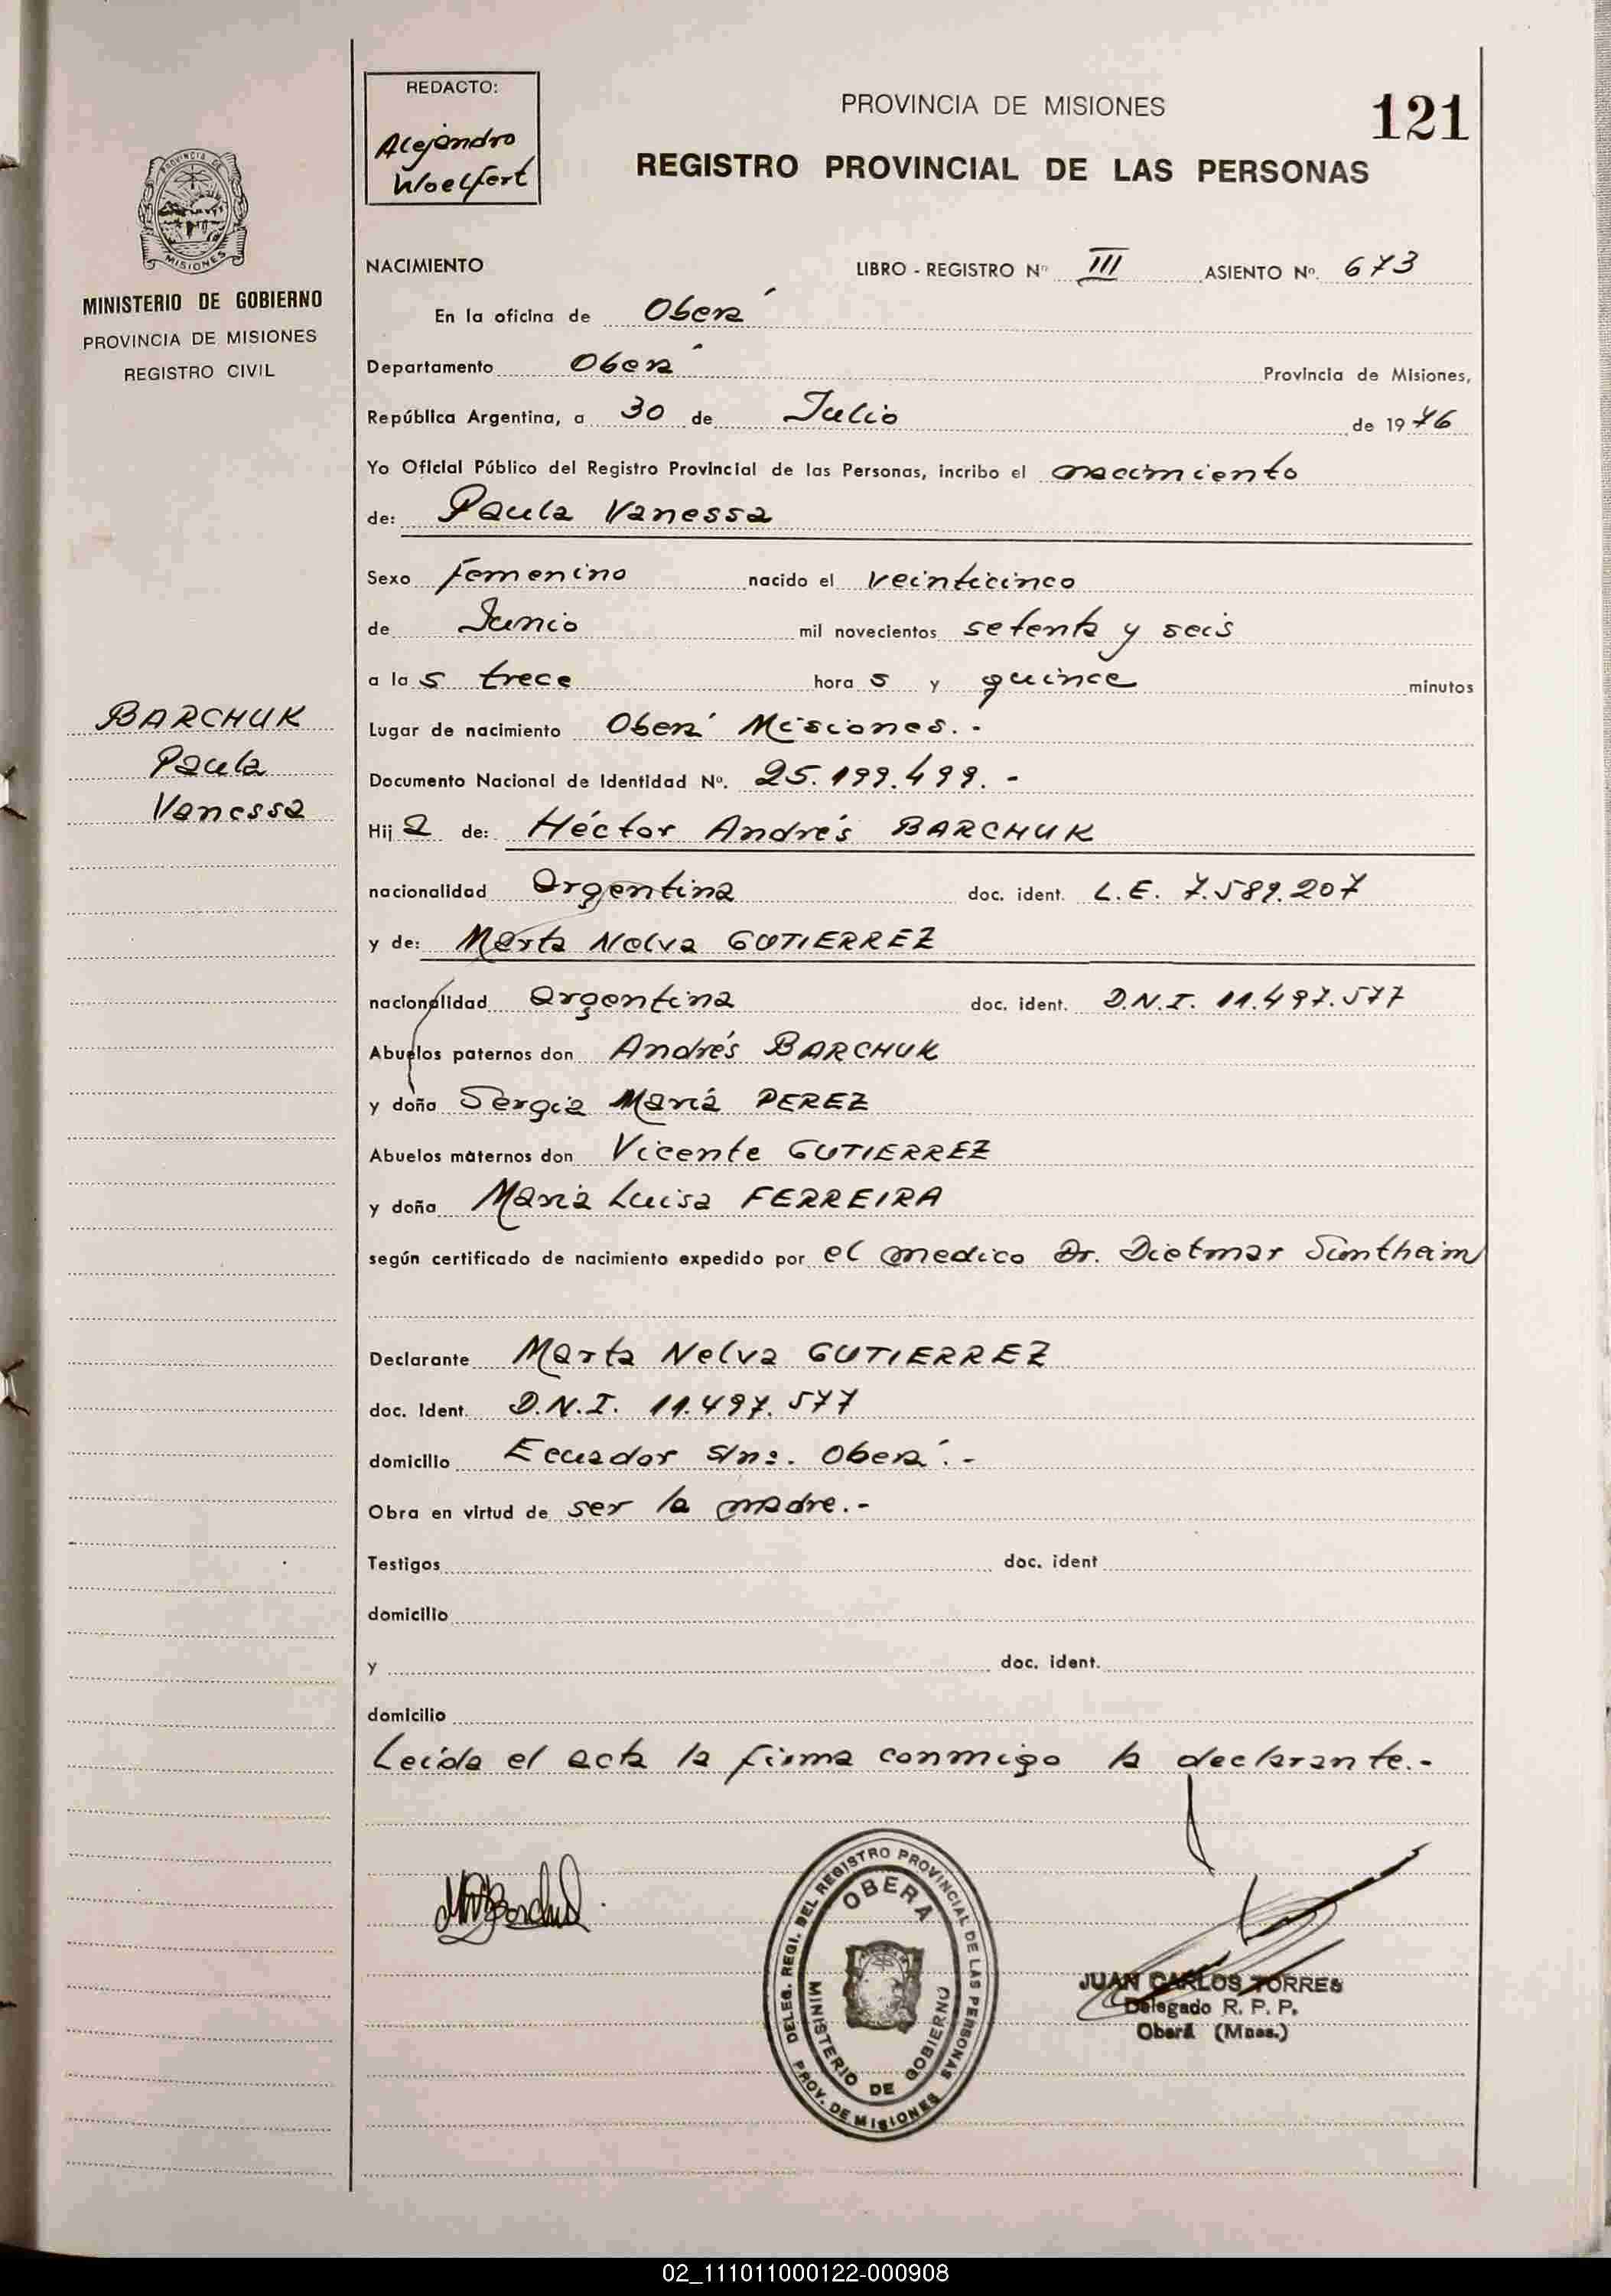 REDACTO:
Alejandro
Woelfert
PROVINCIA DE MISIONES
121
REGISTRO PROVINCIAL DE LAS PERSONAS
PROVINCIA DE
MISIONES
MINISTERIO DE GOBIERNO
PROVINCIA DE MISIONES
REGISTRO CIVIL
NACIMIENTO LIBRO - REGISTRO Nº III ASIENTO Nº. 673
En la oficina de Oberá
Departamento Oberá Provincia de Misiones,
República Argentina, a 30 de Julio de 1976
Yo Oficial Público del Registro Provincial de las Personas, incribo el nacimiento
de: Paula Vanessa
Sexo femenino nacido el veinticinco
de Junio mil novecientos setenta y seis
a las trece horas y quince minutos
BARCHUK
Paula
Vanessa
Lugar de nacimiento Oberá Misiones.-
Documento Nacional de Identidad Nº. 25.199.499.-
Hija de: Héctor Andrés BARCHUK
nacionalidad Argentina doc. ident. L.E. 7.589.207
y de: Marta Nelva GUTIERREZ
nacionalidad Argentina doc. ident. D.N.I. 11.497.577
Abuelos paternos don Andrés BARCHUK
y doña Sergia María PEREZ
Abuelos maternos don Vicente GUTIERREZ
y doña María Luisa FERREIRA
según certificado de nacimiento expedido por el medico Dr. Dietmar Sontheim
Declarante Marta Nelva GUTIERREZ
doc. Ident. D.N.I. 11.497.577
domicilio Ecuador s/nº. Oberá.-
Obra en virtud de ser la madre.-
Testigos doc. ident
domicilio
y doc. ident.
domicilio
Leída el acta la firma conmigo la declarante.-
DELEG. REGI. DEL REGISTRO PROVINCIAL DE LAS PERSONAS
OBERA
MINISTERIO DE GOBIERNO
PROV. DE MISIONES
JUAN CARLOS TORRES
Delegado R. P. P.
Oberá (Mnes.)
02_111011000122-000908